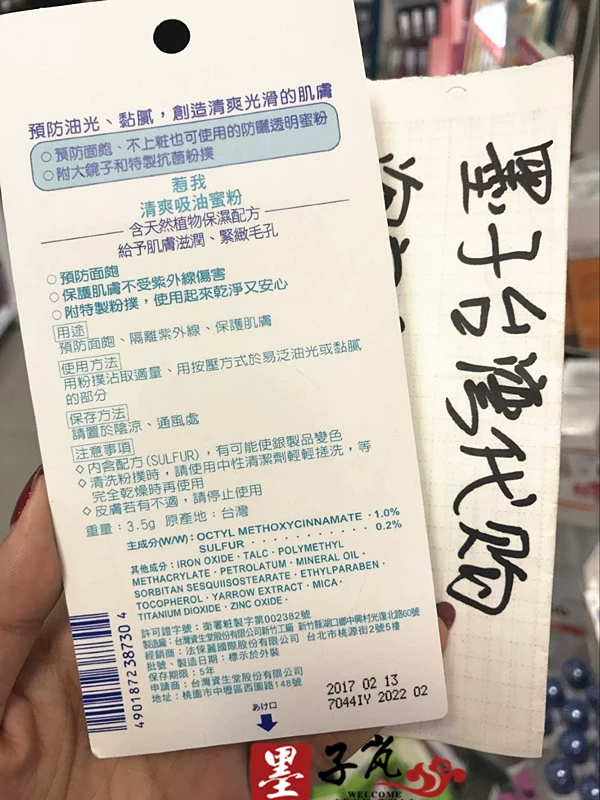 預防油光、黏膩，創造清爽光滑的肌膚
○預防面皰、不上粧也可使用的防曬透明蜜粉
○附大鏡子和特製抗菌粉撲
惹我
清爽吸油蜜粉
含天然植物保濕配方
給予肌膚滋潤、緊緻毛孔
○預防面皰
○保護肌膚不受紫外線傷害
○附特製粉撲，使用起來乾淨又安心
用途
預防面皰、隔離紫外線、保護肌膚
使用方法
用粉撲沾取適量、用按壓方式於易泛油光或黏膩
的部分
保存方法
請置於陰涼、通風處
注意事項
◇內含配方(SULFUR)，有可能使銀製品變色
◇清洗粉撲時，請使用中性清潔劑輕輕搓洗，等
完全乾燥時再使用
◇皮膚若有不適，請停止使用
重量：3.5g 原產地：台灣
主成分(W/W)：OCTYL METHOXYCINNAMATE · 1.0%
SULFUR · · · · · · · · · · · 0.2%
其他成分：IRON OXIDE · TALC · POLYMETHYL
METHACRYLATE · PETROLATUM · MINERAL OIL ·
SORBITAN SESQUIISOSTEARATE · ETHYLPARABEN ·
TOCOPHEROL · YARROW EXTRACT · MICA ·
TITANIUM DIOXIDE · ZINC OXIDE ·
許可證字號：衛署粧製字第002382號
製造廠：台灣資生堂股份有限公司新竹工廠 新竹縣湖口鄉中興村光復北路60號
經銷商：法徠麗國際股份有限公司 台北市桃源街2號5樓
批號、製造日期：標示於外裝
保存期限：5年
申請商：台灣資生堂股份有限公司
地址：桃園市中壢區西園路148號
4901872387304
2017 02 13
7044IY 2022 02
あけ口
墨子台灣代购
墨子岚
WELCOME